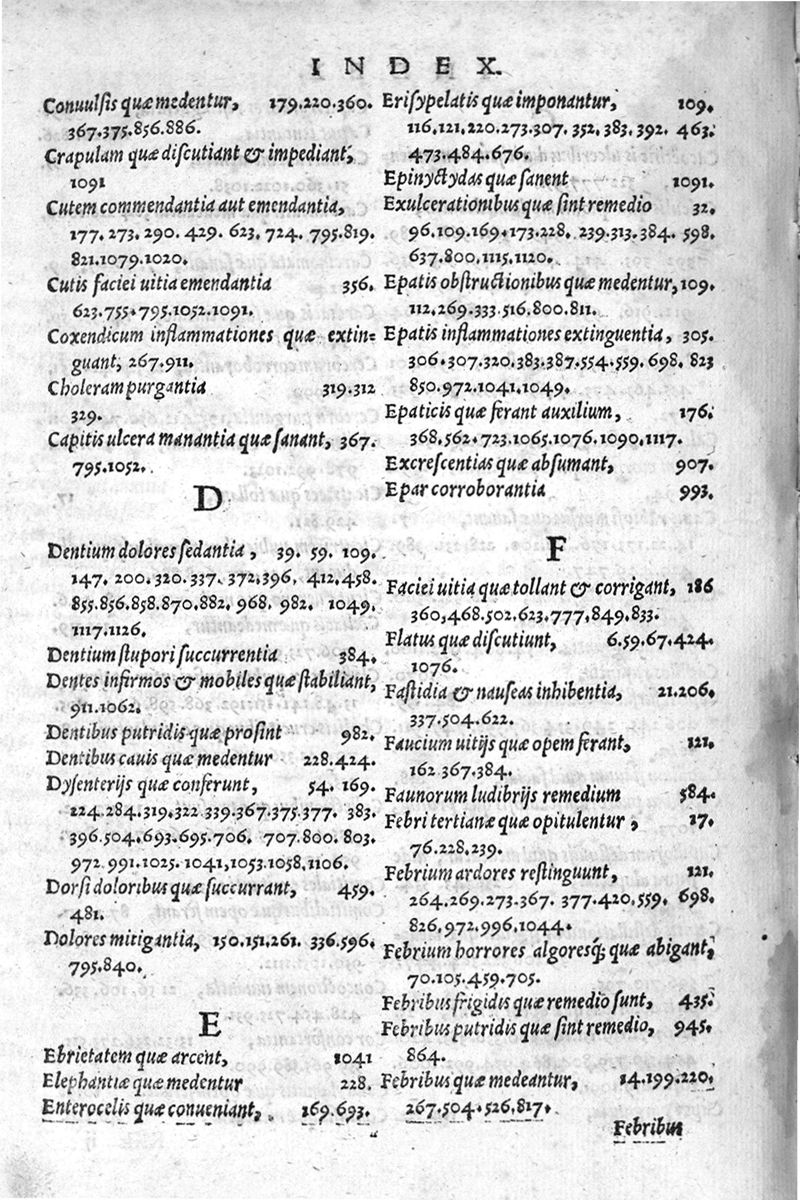 INDEX.
Conuulsis quæ medentur, 179.220.360.
367.375.856.886.
Crapulam quæ discutiant & impediant,
1091
Cutem commendantia aut emendantia,
177. 273. 290. 429. 623. 724. 795.819.
821.1079.1020.
Cutis faciei uitia emendantia 356.
623.755.795.1052.1091.
Coxendicum inflammationes quæ extin-
guant, 267.911.
Choleram purgantia 319.312
329.
Capitis ulcera manantia quæ sanant, 367.
795.1052.
D
Dentium dolores sedantia, 39. 59. 109.
147. 200.320.337. 372.396. 412.458.
855.856.858.870.882. 968. 982. 1049.
1117.1126.
Dentium stupori succurrentia 384.
Dentes infirmos & mobiles quæ stabiliant,
911.1062.
Dentibus putridis quæ prosint 982.
Dentibus cauis quæ medentur 228.424.
Dysenterijs quæ conferunt, 54. 169.
224.284.319.322 339.367.375.377. 383.
396.504.693.695.706. 707.800. 803.
972 991.1025.1041,1053.1058,1106.
Dorsi doloribus quæ succurrant, 459.
481.
Dolores mitigantia, 150.151.261. 336.596.
795.840.
E
Ebrietatem quæ arcent, 1041
Elephantiæ quæ medentur 228.
Enterocelis quæ conueniant, 169.693.
Erisypelatis quæ imponantur, 109.
116.121.220.273.307. 352. 383. 392. 463.
473.484.676.
Epinyctydas quæ sanent 1091.
Exulcerationibus quæ sint remedio 32.
96.109.169.173.228. 239.313.384. 598.
637.800.1115.1120.
Epatis obstructionibus quæ medentur, 109.
112.269.333.516.800.811.
Epatis inflammationes extinguentia, 305.
306.307.320.383.387.554.559. 698. 823
850.972.1041.1049.
Epaticis quæ ferant auxilium, 176.
368.562.723.1065.1076.1090.1117.
Excrescentias quæ absumant, 907.
Epar corroborantia 993.
F
Faciei uitia quæ tollant & corrigant, 186
360,468.502.623.777.849.833.
Flatus quæ discutiunt, 6.59.67.424.
1076.
Fastidia & nauseas inhibentia, 21.206.
337.504.622.
Faucium uitijs quæ opem ferant, 121.
162 367.384.
Faunorum ludibrijs remedium 584.
Febri tertianæ quæ opitulentur, 17.
76.228.239.
Febrium ardores restinguunt, 121.
264.269.273.367. 377.420.559. 698.
826.972.996.1044.
Febrium horrores algoresq́; quæ abigant,
70.105.459.705.
Febribus frigidis quæ remedio sunt, 435.
Febribus putridis quæ sint remedio, 945.
864.
Febribus quæ medeantur, 14.199.220.
267.504.526.817.
Febribus